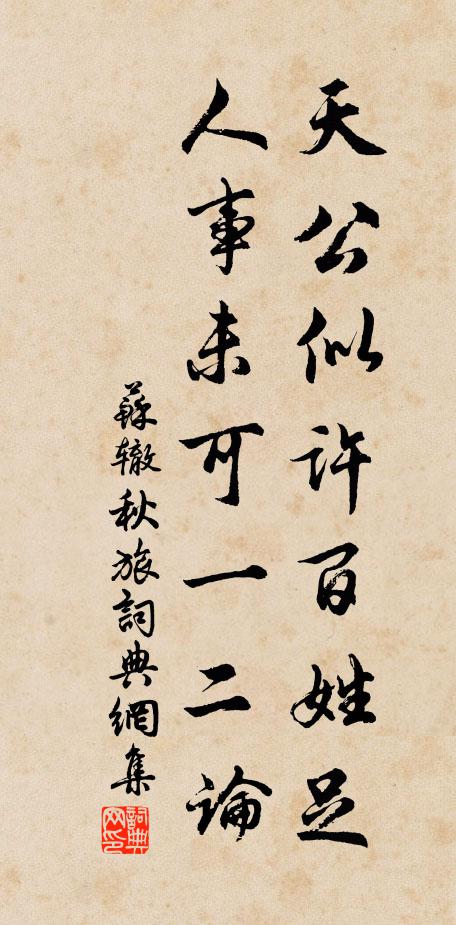 天公似许百姓足
人事未可一二論
蘇辙秋旅詞典網集
詞典网印